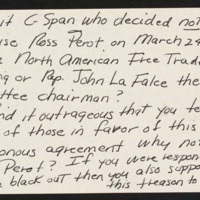 it C-Span who decided not
ise Ross Perot on March 24
North American Free Trade
ng or Rep. John La Falce the
ttee chairman?
nd it outrageous that you te
of those in favor of this
onous agreement why not
Perot? If you were respon
e black out then you also suppo
this treason to